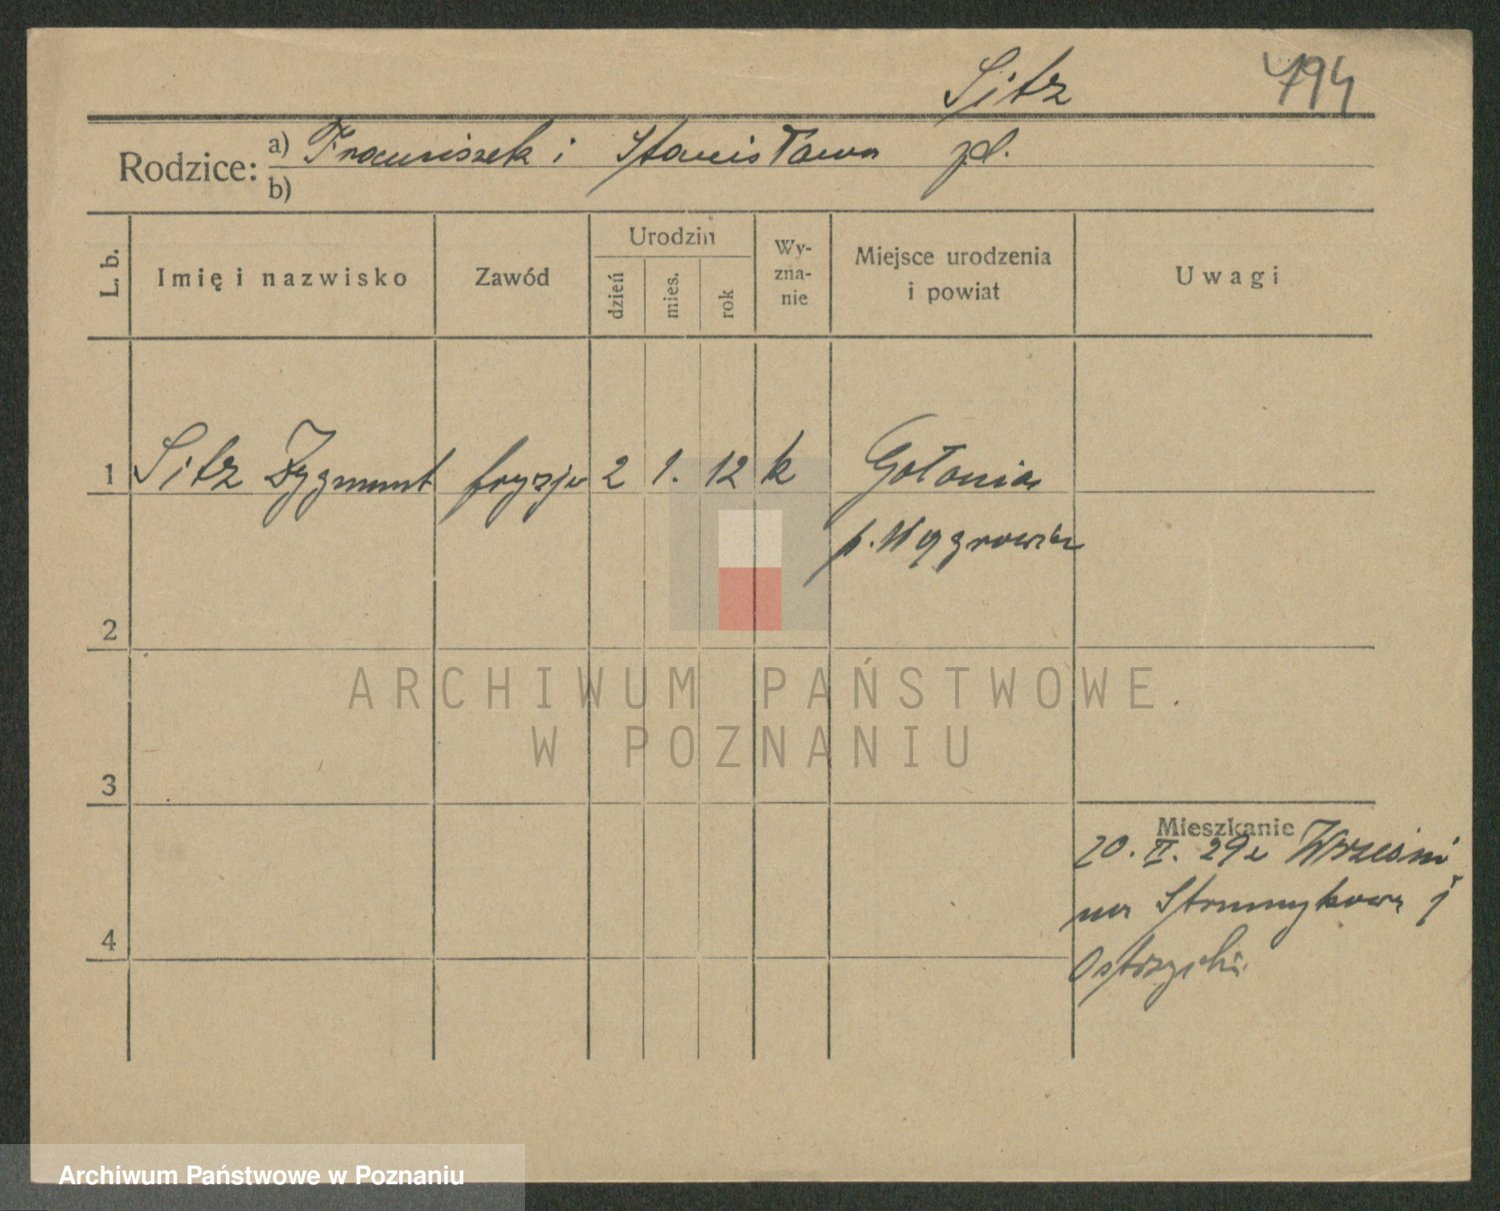 Sitz 494
Rodzice: a) Franciszek i Stanisława pl.
b)
L. b. Imię i nazwisko Zawód Urodzin dzień mies. rok Wyznanie Miejsce urodzenia i powiat Uwagi
1 Sitz Zygmunt fryzjer 2 1. 12 k Gołania
p. Wągrowiec
2
ARCHIWUM PAŃSTWOWE
W POZNANIU
3
Mieszkanie
20. II. 29 z Wrześni
na Strumykową
4
Archiwum Państwowe w Poznaniu